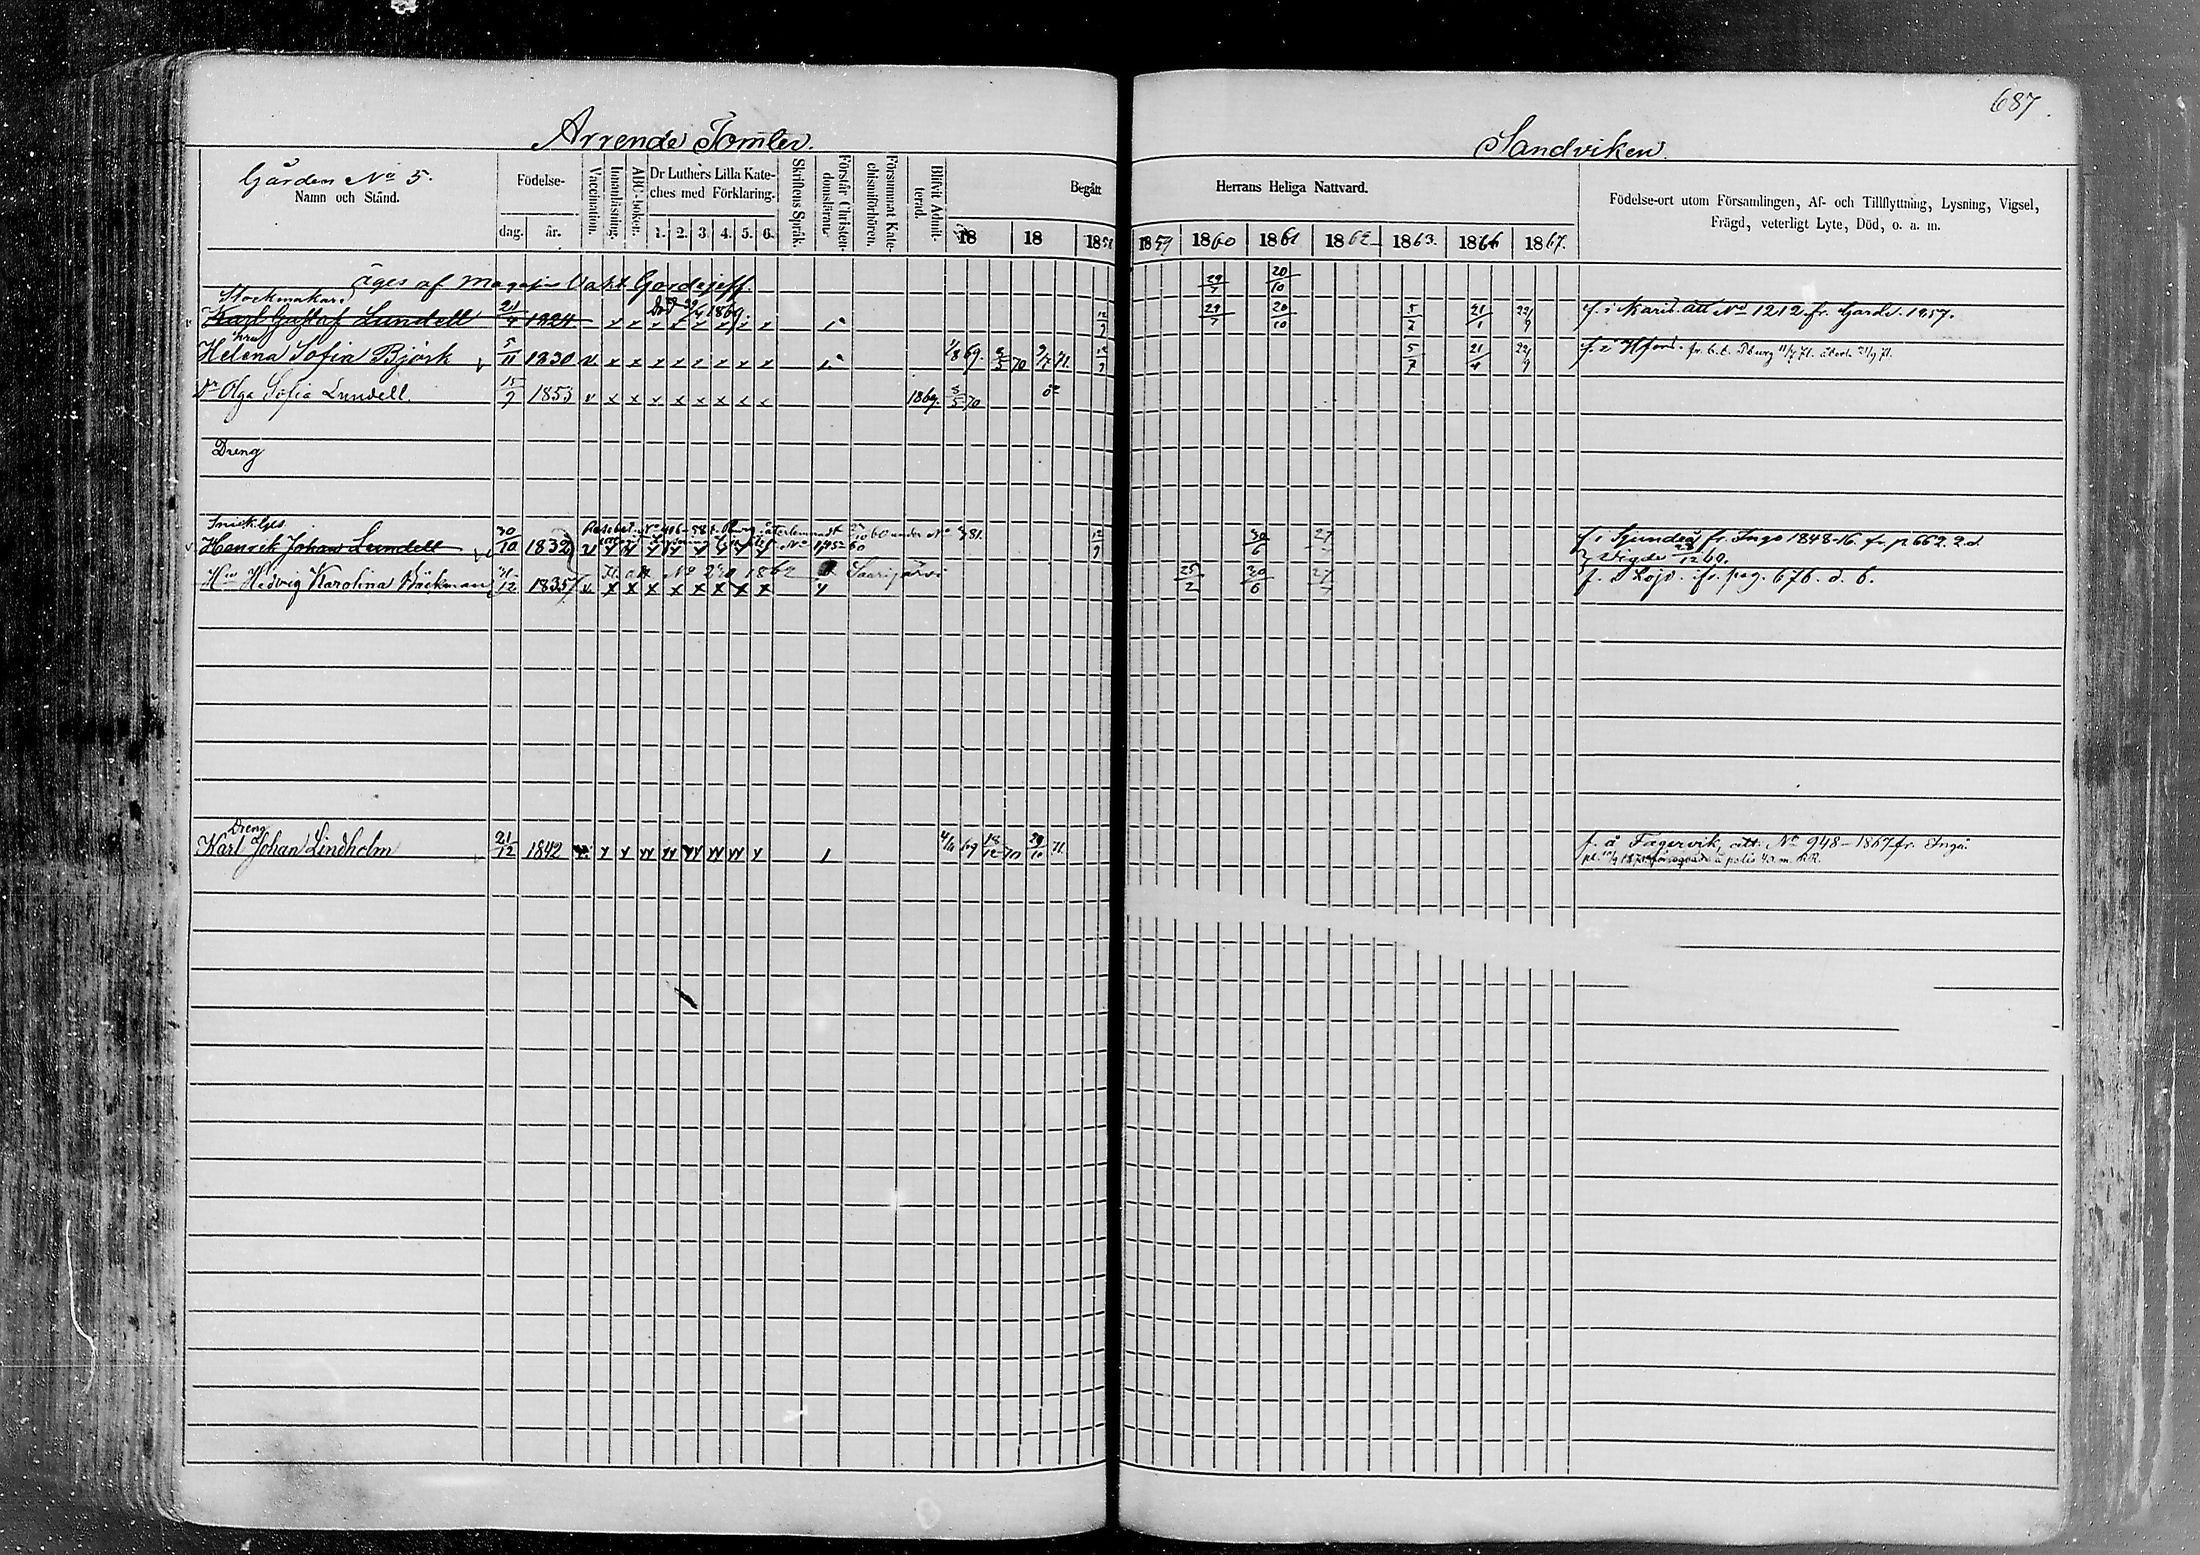 687.
Arrende Tomter. Sandviken.
Gården No 5.
Namn och Stånd. Födelse- dag. år. Vaccination. Innanläsning. ABC-boken. Dr Luthers Lilla Kateches med Förklaring. 1. 2. 3. 4. 5. 6. Skriftens Språk. Förstår Christendomsläran. Försummat Katechismiförhören. Blifvit Admitterad. Begått Herrans Heliga Nattvard. 18 18 1858 1859 1860 1861 1862 1863. 1866 1867. Födelse-ort utom Församlingen, Af- och Tillflyttning, Lysning, Vigsel, Frägd, veterligt Lyte, Död, o. a. m.
äges af Magasins Vakt Gordejeff 29/7 20/10
Stockmakare
Karl Gustaf Lundell 21/4 1824 Död 29/4 1869. 12/9 29/7 20/10 5/7 21/1 22/9 f. i Karis att No 1212 fr. Garde. 1857.
hru
Helena Sofia Björk 5/11 1830 v. x x x x x x x x 1/8 69. 70 71. 12/9 5/7 21/1 22/9 f. i Hfors.
Dr Olga Sofia Lundell. 15/9 1853 v x x x x x x x x 1869. 70
Dreng
Snick. Ges.
Henrik Johan Lundell 30/10 1832 12/9 30/6 f. i Sjundeå fr. Ingo 1848-16. fr. p 662. 2d.
Vigde 12 60.
Hu Hedvig Karolina Bäckman 31/12 1835 v. x x x x x x x x Saarijärvi 25/2 30/6 f. i Lojo. fr. pag. 676. d. 6.
Dreng
Karl Johan Lindholm 21/12 1842 69 70 29/10 71. f. å Fagervik, att. No 948-1867 fr. Ingå